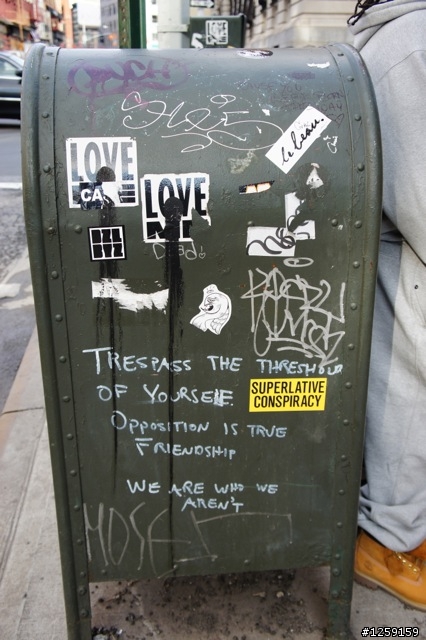 le beau.
LOVE
CA
LOVE
Dead
TRESPASS THE THRESHOLD
OF YOURSELF.
SUPERLATIVE
CONSPIRACY
OPPOSITION IS TRUE
FRIENDSHIP
WE ARE WHO WE
AREN'T
MOSE
#1259159